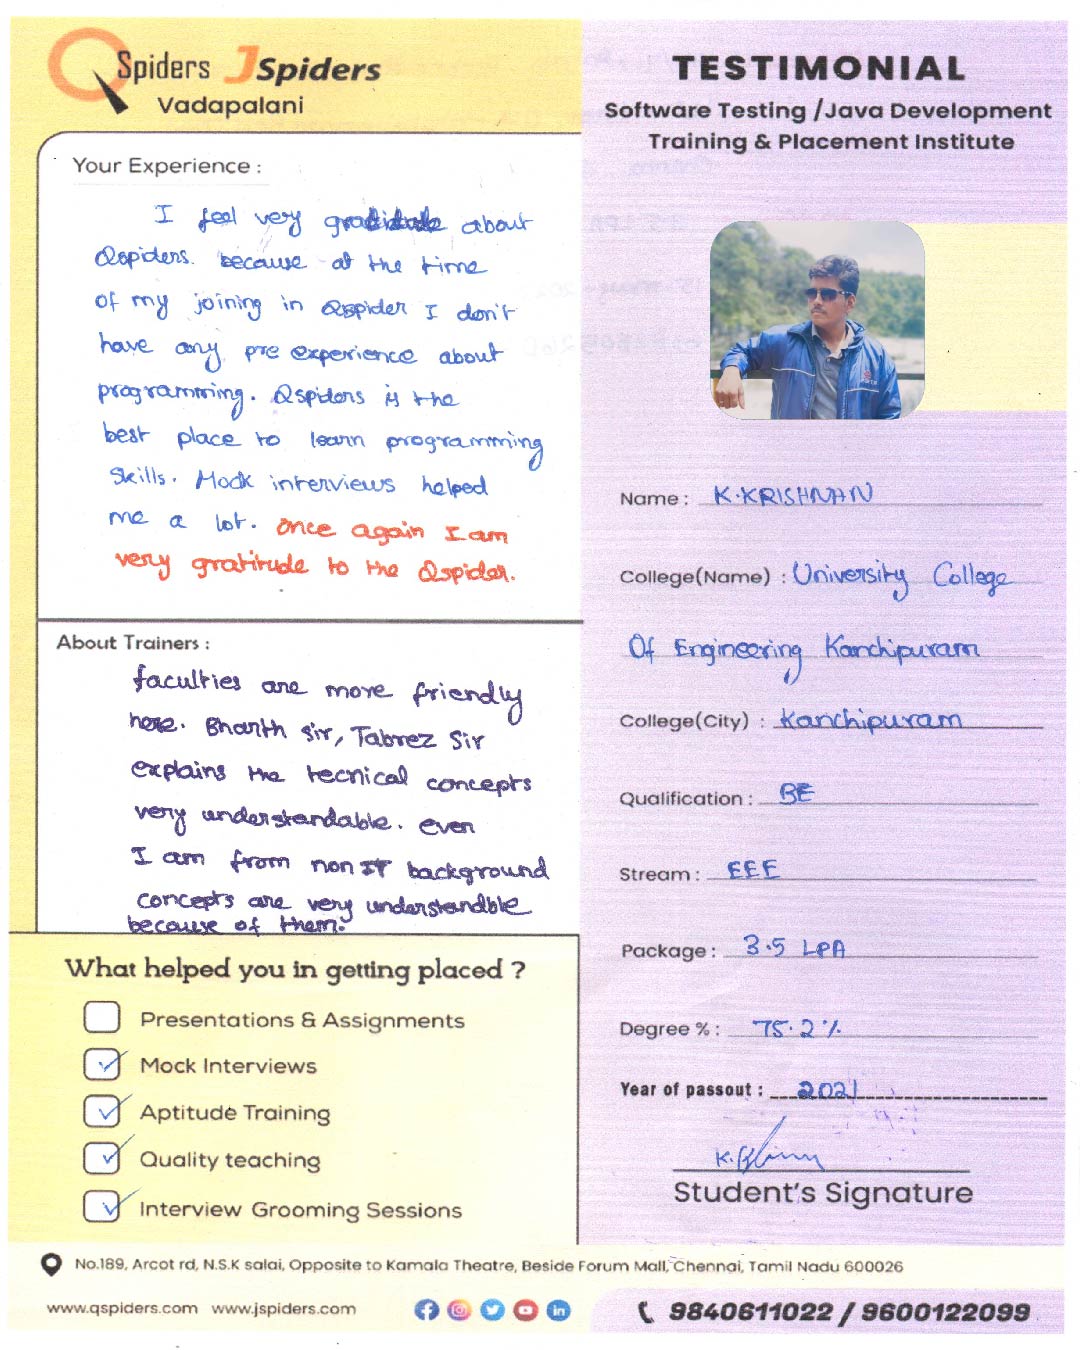 QSpiders JSpiders
Vadapalani
Your Experience :
I feel very gratitude about
Qspiders. because at the time
of my joining in Qspider I don't
have any pre experience about
programming. Qspiders is the
best place to learn programming
skills. Mock interviews helped
me a lot. once again I am
very gratitude to the Qspider.
About Trainers :
faculties are more friendly
here. Bharth sir, Tabrez Sir
explains the tecnical concepts
very understandable. even
I am from non IT background
concepts are very understandble
because of them.
What helped you in getting placed ?
Presentations & Assignments
Mock Interviews
Aptitude Training
Quality teaching
Interview Grooming Sessions
TESTIMONIAL
Software Testing /Java Development
Training & Placement Institute
Name : K.KRISHNAN
College(Name) : University College
Of Engineering Kanchipuram
College(City) : Kanchipuram
Qualification : BE
Stream : EEE
Package : 3.5 LPA
Degree % : 75.2%
Year of passout : 2021
Student's Signature
No.189, Arcot rd, N.S.K salai, Opposite to Kamala Theatre, Beside Forum Mall, Chennai, Tamil Nadu 600026
www.qspiders.com www.jspiders.com
9840611022 / 9600122099